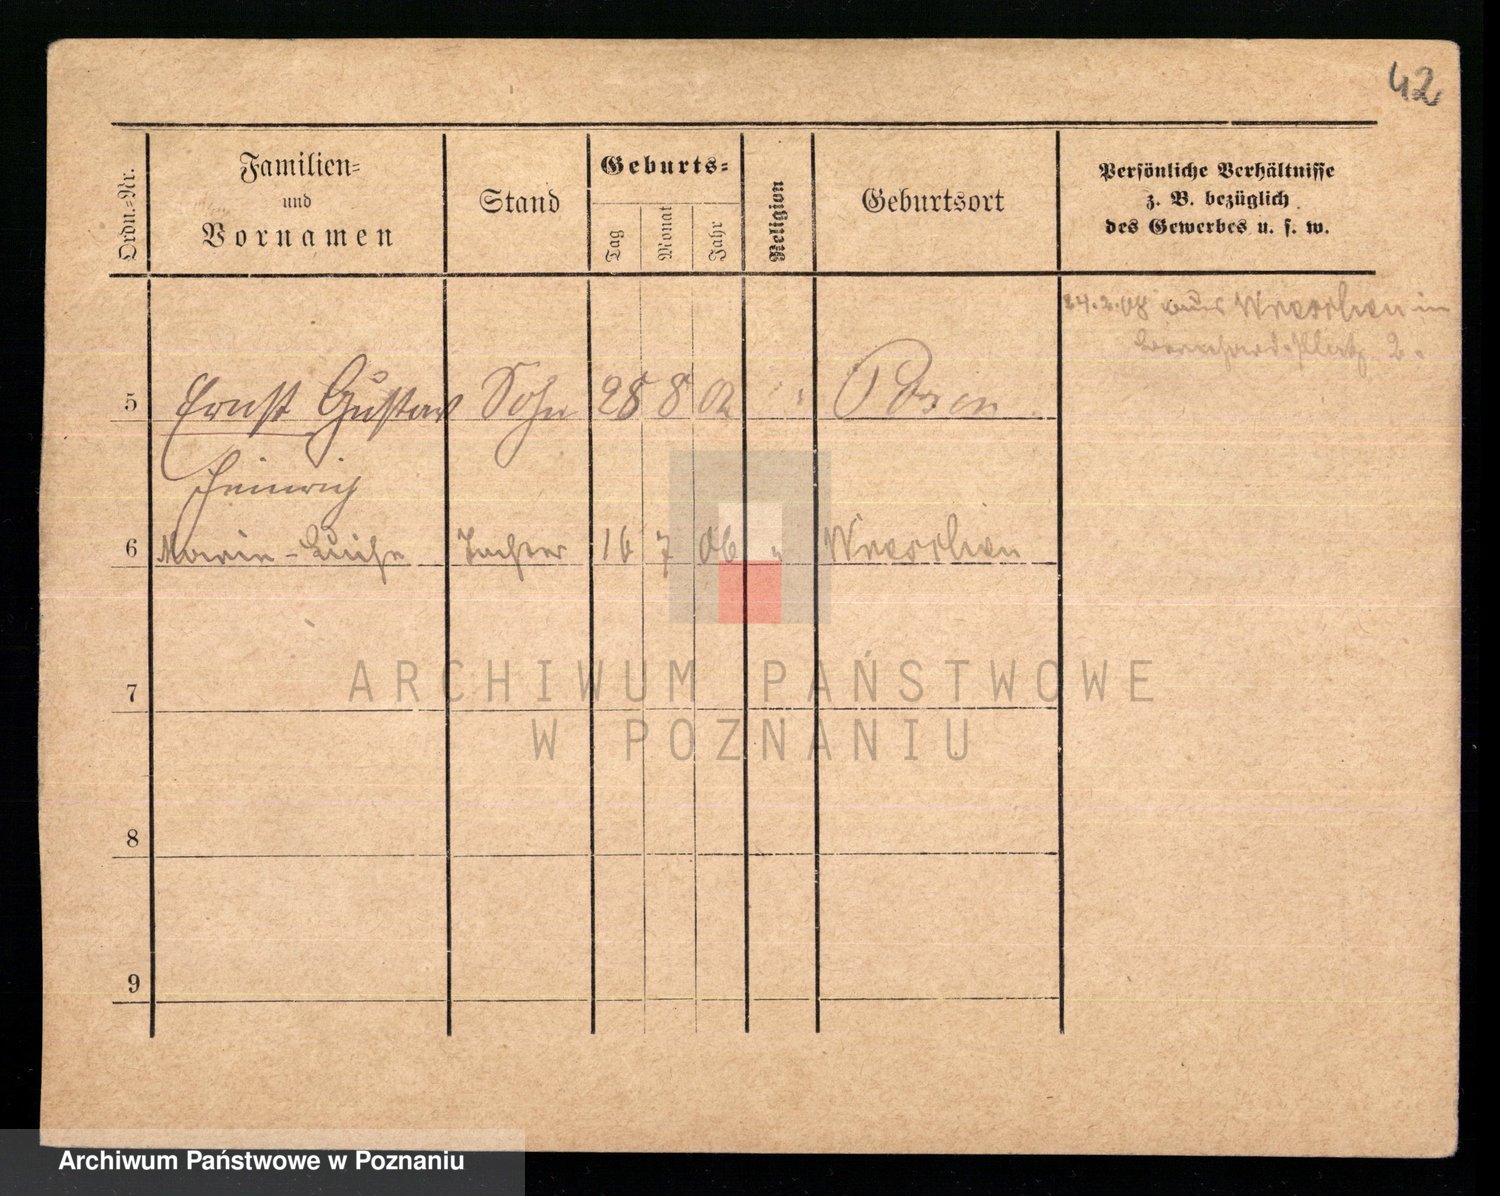 42
Ordn.-Nr.
Familien-
und
Vornamen
Stand
Geburts-
Tag
Monat
Jahr
Religion
Geburtsort
Persönliche Verhältnisse
z. B. bezüglich
des Gewerbes u. s. w.
24.2.08 aus Wreschen in
Bernhard-Platz 2.
5 Ernst Gustav Sohn 28 8 02 " Posen
Heinrich
6 Marie-Luise Tochter 16 7 06 " Wreschen
ARCHIWUM PAŃSTWOWE
7
W POZNANIU
8
9
Archiwum Państwowe w Poznaniu